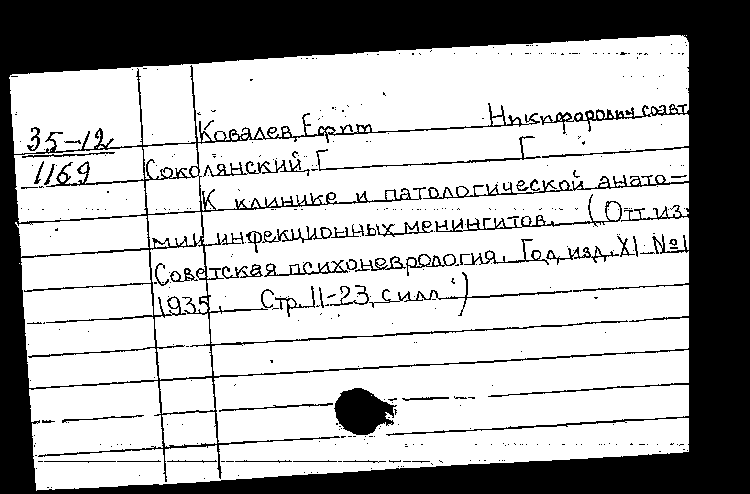 35-12
1169
Ковалев, Ефим Никифорович соавт.
Соколянский, Г Г
К клинике и патологической анато-
мии инфекционных менингитов. (Отт. из:
Советская психоневрология. Год изд. XI №1
1935. Стр. 11-23, с илл.)